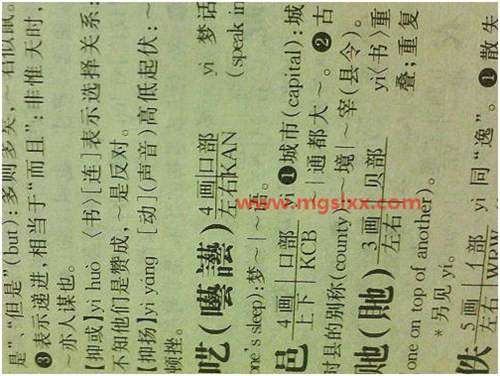 是”、“但是”(but)：多则多矣，~
❸表示递进，相当于“而且”：非惟天时，
~亦人谋也。
【抑或】yì huò 〈书〉[连]表示选择关系：
不知他们是赞成，~是反对。
【抑扬】yì yáng [动](声音)高低起伏：~
顿挫。
呓(囈讛) 4画 口部 左右 KAN yì 梦话(speak in
one's sleep)：梦~|~语。
邑 4画 口部 上下 KCB yì ❶城市(capital)：城
|通都大~。❷古
时县的别称(county)
境|~宰(县令)。
(貤) 3画 贝部 左右 yì〈书〉重
叠；重复
one on top of another)。
*另见 yí。
佚 5画 亻部 左右 yì 同“逸”。❶散失
www.mgsixx.com